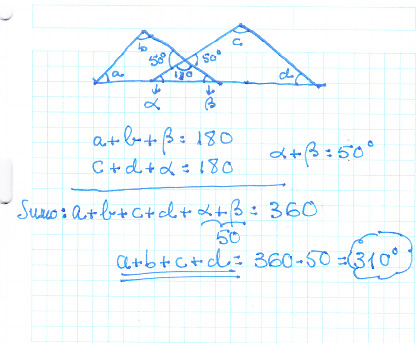 b
c
50°
50°
a
130
d
α
β
a+b+β=180
c+d+α=180
α+β=50°
Sumo: a+b+c+d+α+β=360
50
a+b+c+d=360-50=310°